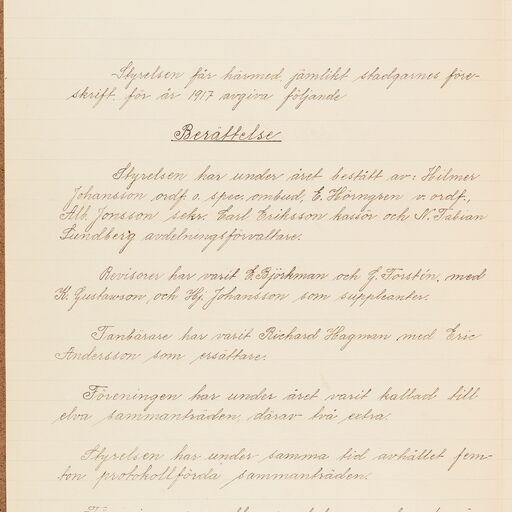 Styrelsen får härmed, jämlikt stadgarnes före-
skrift, för år 1917 avgiva följande
Berättelse
Styrelsen har under året bestått av: Hilmer
Johansson ordf. o. spec. ombud, E. Hörngren v. ordf.,
Alb. Jonsson sekr. Carl Eriksson kassör och N. Fabian
Lundberg avdelningsförvaltare.
Revisorer har varit E. Björkman och G. Forstén, med
K. Gustawson, och Hj. Johansson som suppleanter.
Fanbärare har varit Richard Hagman med Eric
Andersson som ersättare.
Föreningen har under året varit kallad till
elva sammanträden, därav två extra.
Styrelsen har under samma tid avhållet fem-
ton protokollförda sammanträden.